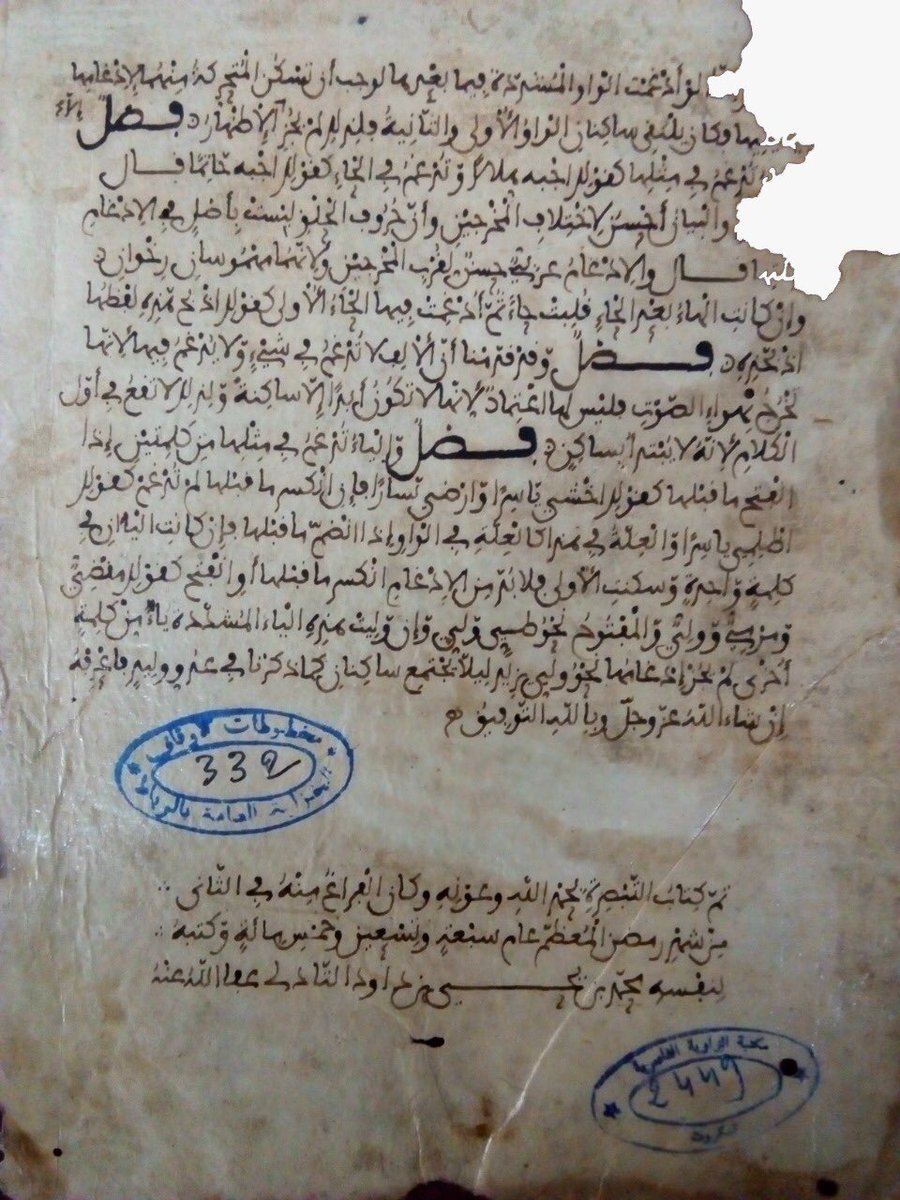 لو أدغمت الواو المشددة فيما بعدها لوجب أن تسكن المتحركة منهما لإدغامها
فيما فكان يلتقي ساكنان الواو الأولى والثانية فلذلك لم يجز إلا الإظهار فصل
تدغم في مثلها كقولك اجبه هلالا وتدغم في الحاء كقولك اجبه حاتما قال
والبيان أحسن لاختلاف المخرجين وأن حروف الحلق ليست بأصل في الإدغام
قال والإدغام عربي حسن لقرب المخرجين ولأنهما مهموسان رخوان
وإن كانت الهاء بعد الحاء قلبت حاء ثم أدغمت فيها الحاء الأولى كقولك اذبح هذه لفظها
اذبحّذه فصل وقد قدمنا أن الألف لا تدغم في شيء ولا يدغم فيها لأنها
تخرج بهواء الصوت فليس لها اعتماد لأنها لا تكون أبدا إلا ساكنة ولذلك لا تقع في أول
الكلام لأنه لا يبتدأ بساكن فصل والياء تدغم في مثلها من كلمتين إذا
انفتح ما قبلها كقولك اخشي ياسرا وارضي يسارا فإن انكسر ما قبلها لم تدغم كقولك
اظلمي ياسرا والعلة في هذا كالعلة في الواو إذا انضم ما قبلها فإن كانت الياءان في
كلمة واحدة وسكنت الأولى فلا بد من الإدغام انكسر ما قبلها أو انفتح كقولك مقضيّ
ومرميّ ووليّ والمفتوح نحو طيّ وليّ وإن وليت هذه الياء المشددة ياء من كلمة
أخرى لم يجز إدغامها نحو وليّ يزيد ليلا يجتمع ساكنان كما ذكرنا في عدوّ وليد فاعرفه
إن شاء الله عز وجل وبالله التوفيق
مخطوطات الأوقاف
332
الخزانة العامة بالرباط
تم كتاب التبصرة بحمد الله وعونه وكان الفراغ منه في الثاني
من شهر رمضن المعظم عام سبعة وتسعين وخمس مائة وكتبه
لنفسه محمد بن يحيى بن داود التادلي عفا الله عنه
مكتبة الزاوية الناصرية
2449
تمكروت